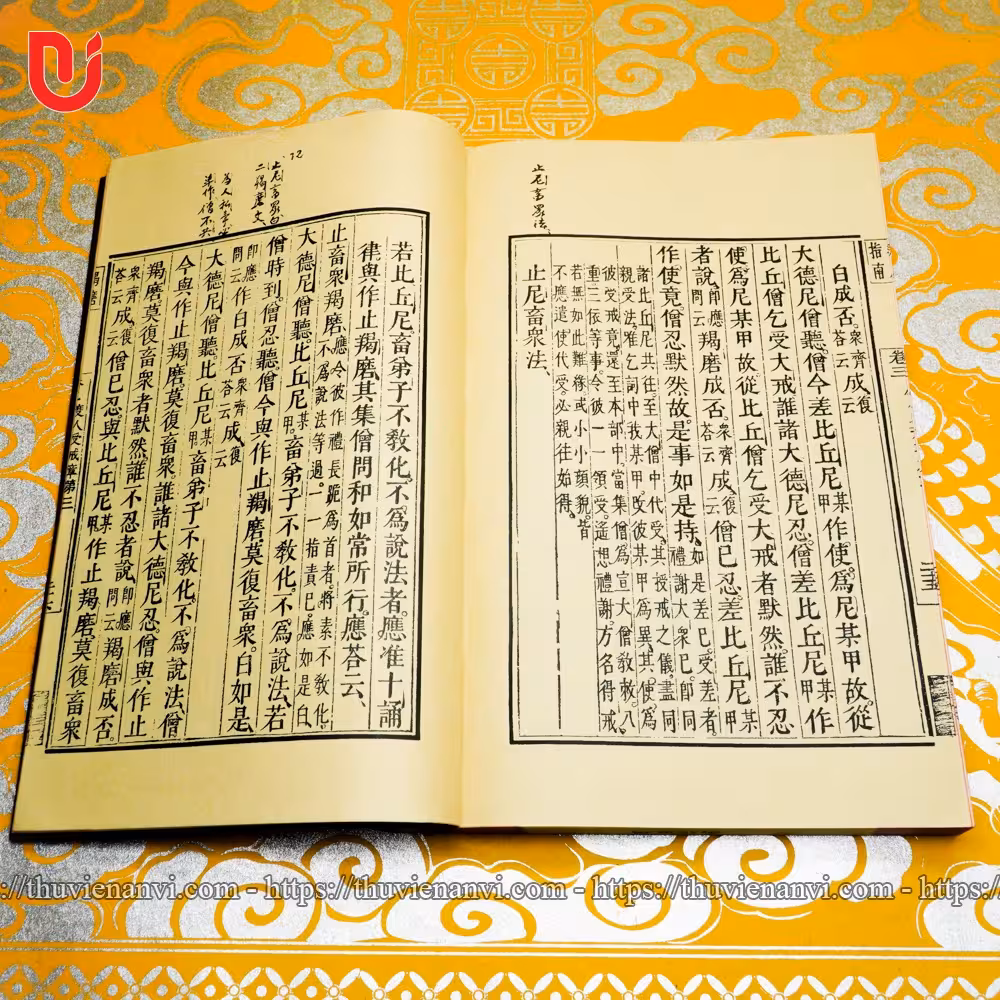 止尼畜眾法、
指南
卷三
白成否。眾齊答云成。復云
大德尼僧聽。僧今差比丘尼某甲作使。爲尼某甲故。從
比丘僧乞受大戒。誰諸大德尼忍。僧差比丘尼某甲作
使。爲尼某甲故。從比丘僧乞受大戒者默然。誰不忍
者說。即應問云羯磨成否。眾齊答云成。復云僧已忍。差比丘尼某甲
作使竟。僧忍默然故。是事如是持。如是差已。受差者禮謝大眾已。即同
諸比丘尼共往至大僧中代受。其授戒之儀。盡同
親受法。唯乞詞中我某甲。改彼某甲爲異。其使爲
彼受戒竟。還至本部中。當集僧爲宣大僧教敕。八
重三依等事。令彼一一領受。遥想禮謝。方名得戒。
若無如此難緣。或小小顏貌。皆
不應遣使代受。必親往始得。
止尼畜眾法、
12
止尼畜眾白
二羯磨文
爲人
若比丘尼。畜弟子不教化。不爲說法者。應准十誦
律與作止羯磨。其集僧問和如常所行。應答云、
止畜眾羯磨。應令彼作禮長跪。爲首者。將素不教化。不爲說法等過。一一指責已。應如是白。
大德尼僧聽。比丘尼某甲。畜弟子不教化。不爲說法。若
僧時到。僧忍聽。僧今與作止羯磨。莫復畜眾。白如是。
即應問云作白成否。眾齊答云成。復云
大德尼僧聽。比丘尼某甲。畜弟子不教化。不爲說法。僧
今與作止羯磨。莫復畜眾。誰諸大德尼忍。僧與作止
羯磨。莫復畜眾者默然。誰不忍者說。即應問云羯磨成否。
眾齊答云成。復云僧已忍。與比丘尼某甲作止羯磨。莫復畜眾
受戒章第三
https://thuvienanvi.com - https://thuvienanvi.com - https://thuvienanvi.com